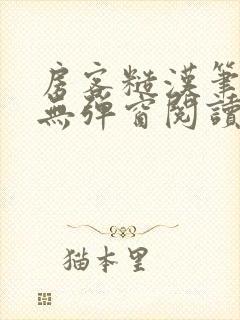 房客糙漢筆
無彈窗閱讀
猫本里